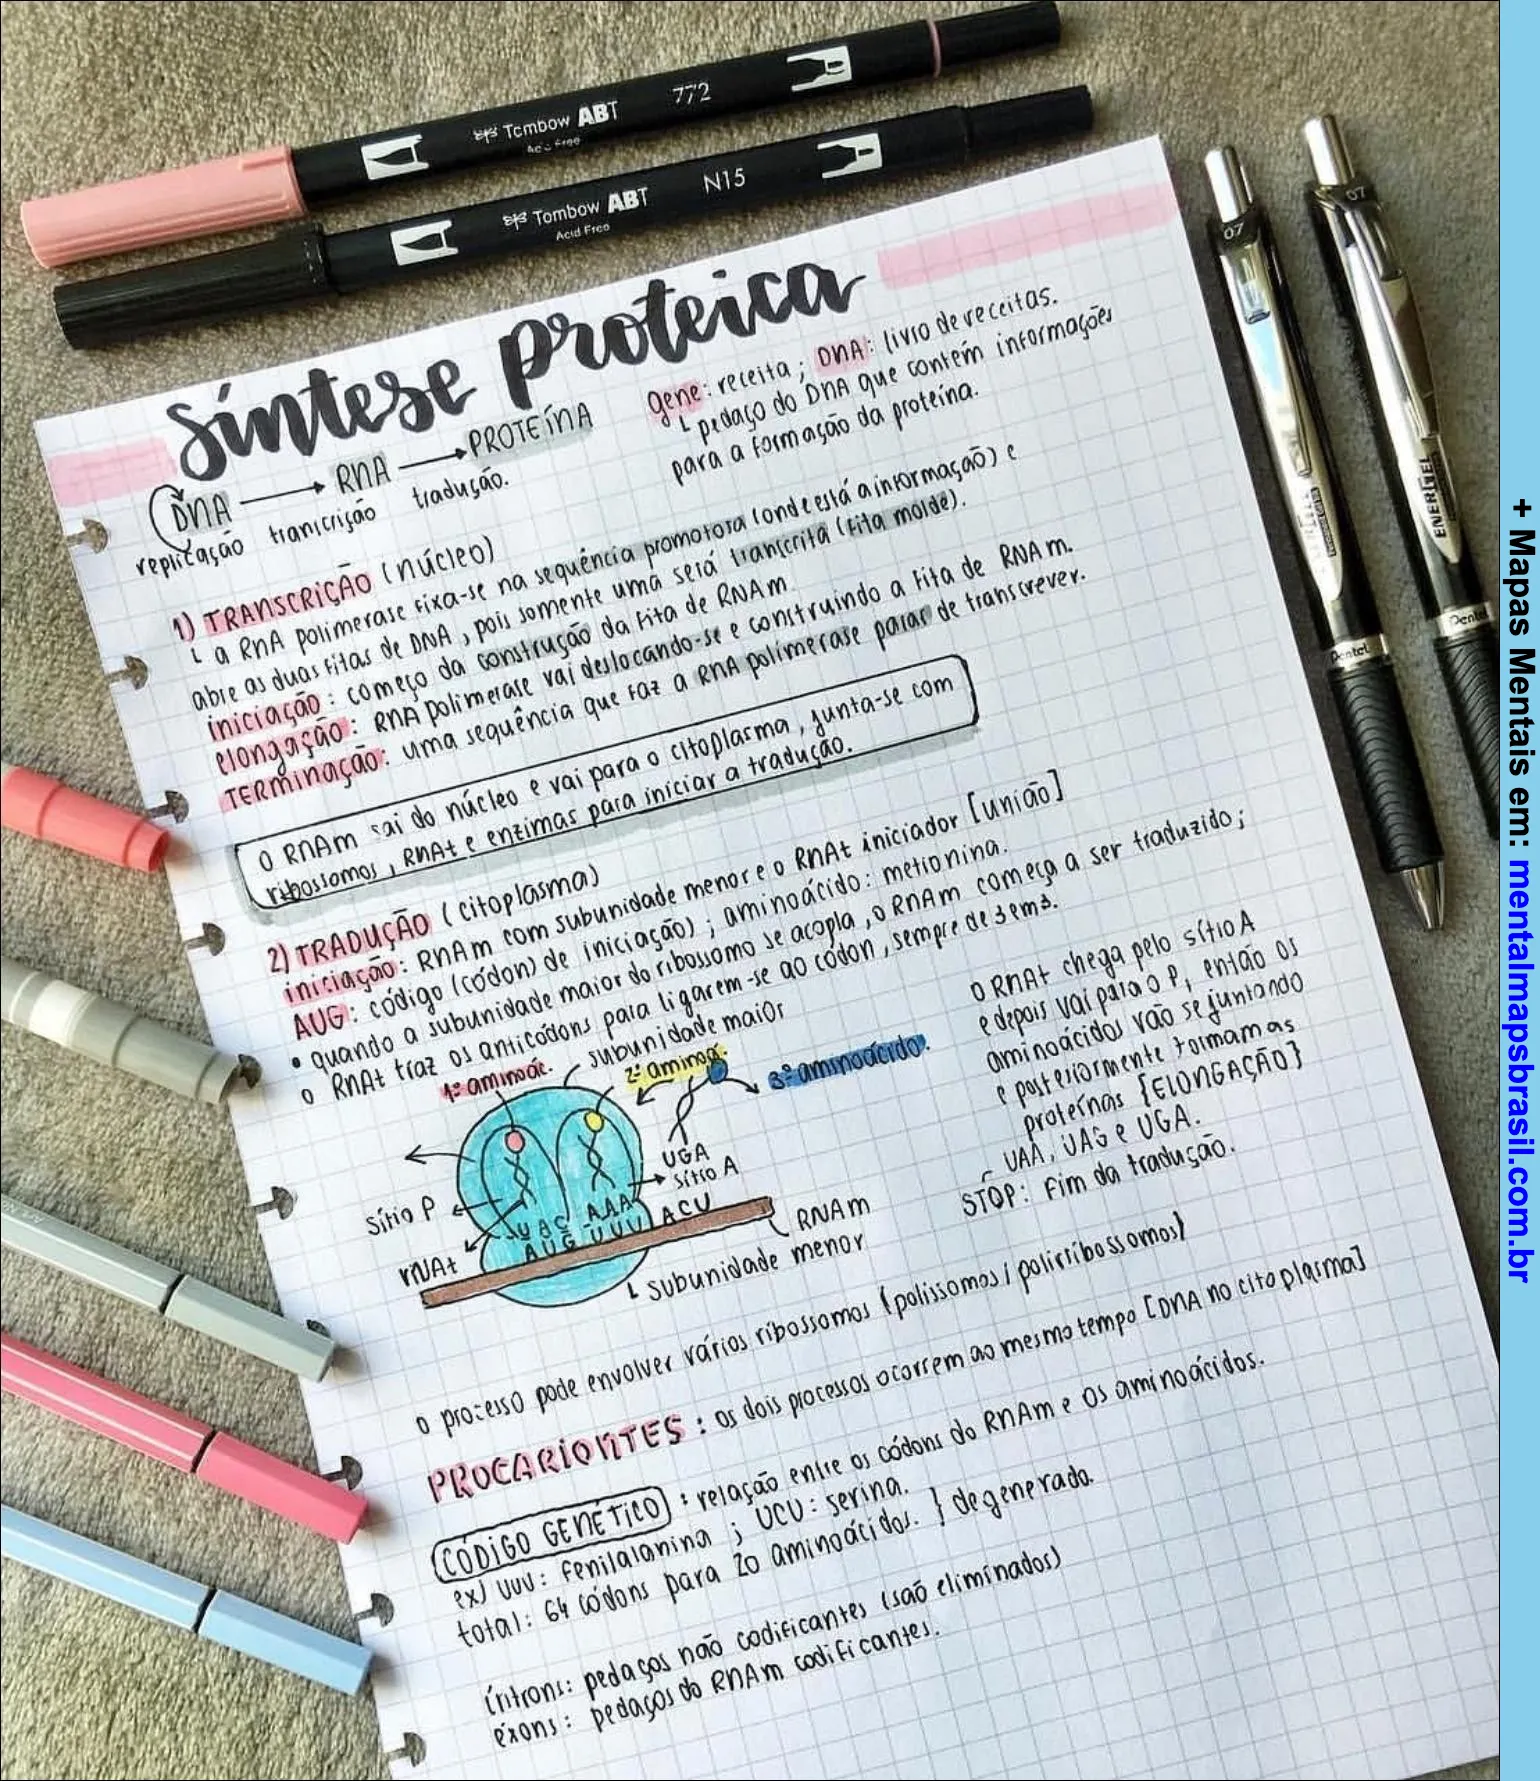 Tombow ABT 772
Acid Free
Tombow ABT N15
Acid Free
07
07
ENERGEL
Pentel
Pentel
Síntese proteica
DNA → RNA → PROTEÍNA
replicação trancrição tradução.
gene: receita ; DNA: livro de receitas.
└ pedaço do DNA que contém informações
para a formação da proteína.
1) TRANSCRIÇÃO (núcleo)
└ a RNA polimerase fixa-se na sequência promotora (onde está a informação) e
abre as duas fitas de DNA, pois somente uma será transcrita (fita molde).
iniciação: começo da construção da fita de RNAm
elongação: RNA polimerase vai deslocando-se e construindo a fita de RNAm.
TERMINAÇÃO: uma sequência que faz a RNA polimerase parar de transcrever.
O RNAm sai do núcleo e vai para o citoplasma, junta-se com
ribossomos, RNAt e enzimas para iniciar a tradução.
2) TRADUÇÃO (citoplasma)
iniciação: RNAm com subunidade menor e o RNAt iniciador [união]
AUG: código (códon) de iniciação) ; aminoácido: metionina.
• quando a subunidade maior do ribossomo se acopla, o RNAm começa a ser traduzido;
o RNAt traz os anticódons para ligarem-se ao códon, sempre de 3 em 3.
subunidade maior
1º aminoác.
2º aminoá.
3º aminoácido.
UGA
sítio A
sítio P
UAC AAA
AUG UUU ACU
rNAt
RNAm
└ subunidade menor
O RNAt chega pelo sítio A
e depois vai para o P, então os
aminoácidos vão se juntando
e posteriormente formam as
proteínas {ELONGAÇÃO}
UAA, UAG e UGA.
STOP: fim da tradução.
O processo pode envolver vários ribossomos (polissomos / polirribossomos)
PROCARIONTES: os dois processos ocorrem ao mesmo tempo [DNA no citoplasma]
CÓDIGO GENÉTICO: relação entre os códons do RNAm e os aminoácidos.
ex) UUU: fenilalanina ; UCU: serina.
total: 64 códons para 20 aminoácidos. } degenerado.
íntrons: pedaços não codificantes (saõ eliminados)
éxons: pedaços do RNAm codificantes.
+ Mapas Mentais em: mentalmapsbrasil.com.br